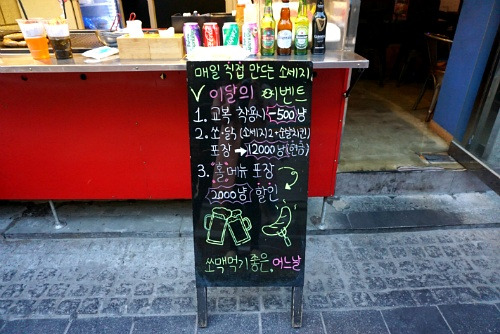 매일 직접 만드는 소세지
✓ 이달의 이벤트
1. 교복 착용시 -500냥
2. 쏘·닭 (소세지2+순살치킨)
포장 ➡ 12000냥(현금)
3. "홀"메뉴 포장
2000냥 할인
쏘맥먹기 좋은, 어느날